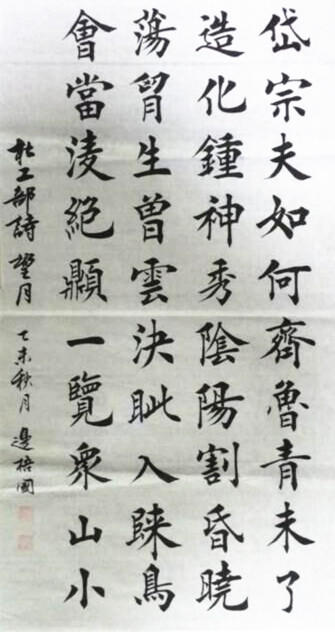 岱宗夫如何齊魯青未了
造化鍾神秀陰陽割昏曉
蕩胷生曽雲決眦入䟽鳥
會當淩絕顚一覽衆山小
杜工部詩望月
乙未秋月 邊梧國